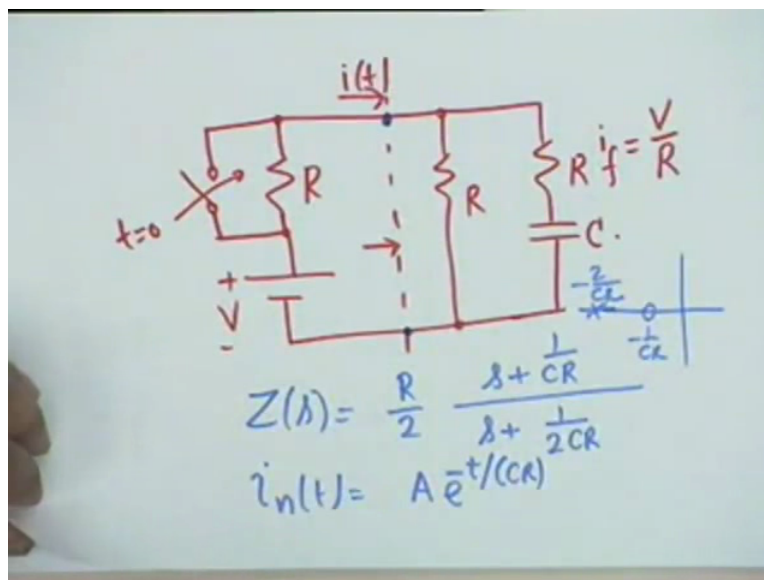 i(t)
R
t=0
+
V
-
R
R
C.
i_f = V/R
-2/CR
-1/CR
Z(s) = R/2 (s + 1/CR)/(s + 1/2CR)
i_n(t) = A e^-t/(CR)